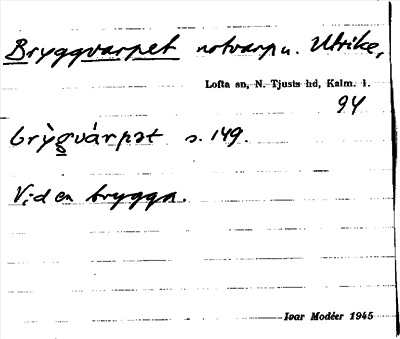 Bryggvarpet notvarp u. Ulrike,
Lofta sn, N. Tjusts hd, Kalm. l.
94
brỳgvárpət s. 149.
Vid en brygga.
Ivar Modéer 1945